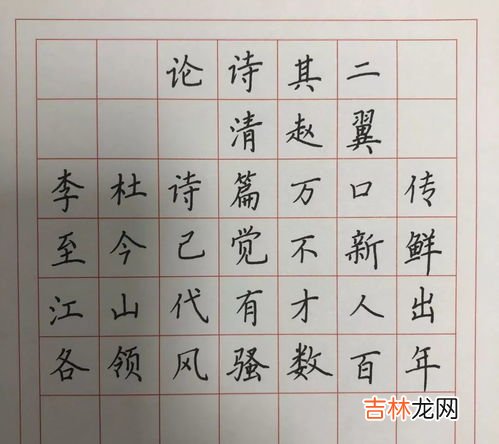 论诗其二
清赵翼
李杜诗篇万口传
至今已觉不新鲜
江山代有才人出
各领风骚数百年
吉林龙网